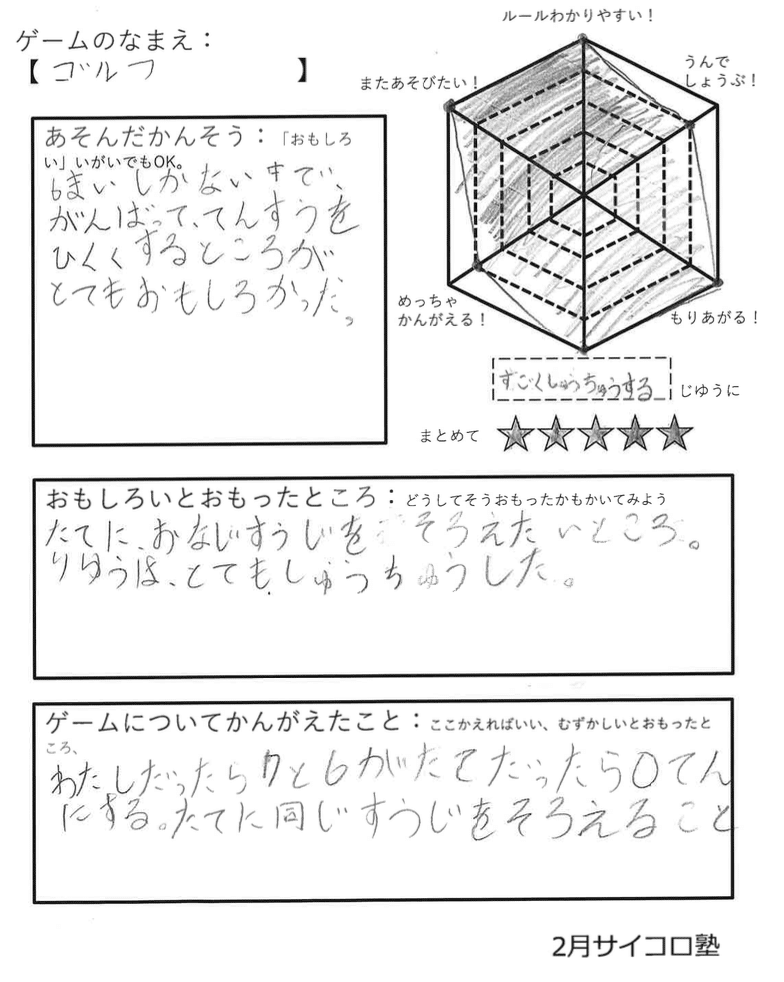 ゲームのなまえ：
【ゴルフ】
ルールわかりやすい！
またあそびたい！
うんで
しょうぶ！
めっちゃ
かんがえる！
もりあがる！
すごくしゅうちゅうする じゆうに
まとめて ★★★★★
あそんだかんそう：「おもしろ
い」いがいでもOK。
6まいしかない中で、
がんばって、てんすうを
ひくくするところが
とてもおもしろかった。
おもしろいとおもったところ：どうしてそうおもったかもかいてみよう
たてに、おなじすうじをそろえたいところ。
りゆうは、とてもしゅうちゅうした。
ゲームについてかんがえたこと：ここかえればいい、むずかしいとおもったと
ころ、
わたしだったら7と6がたてだったら0てん
にする。たてに同じすうじをそろえること
2月サイコロ塾